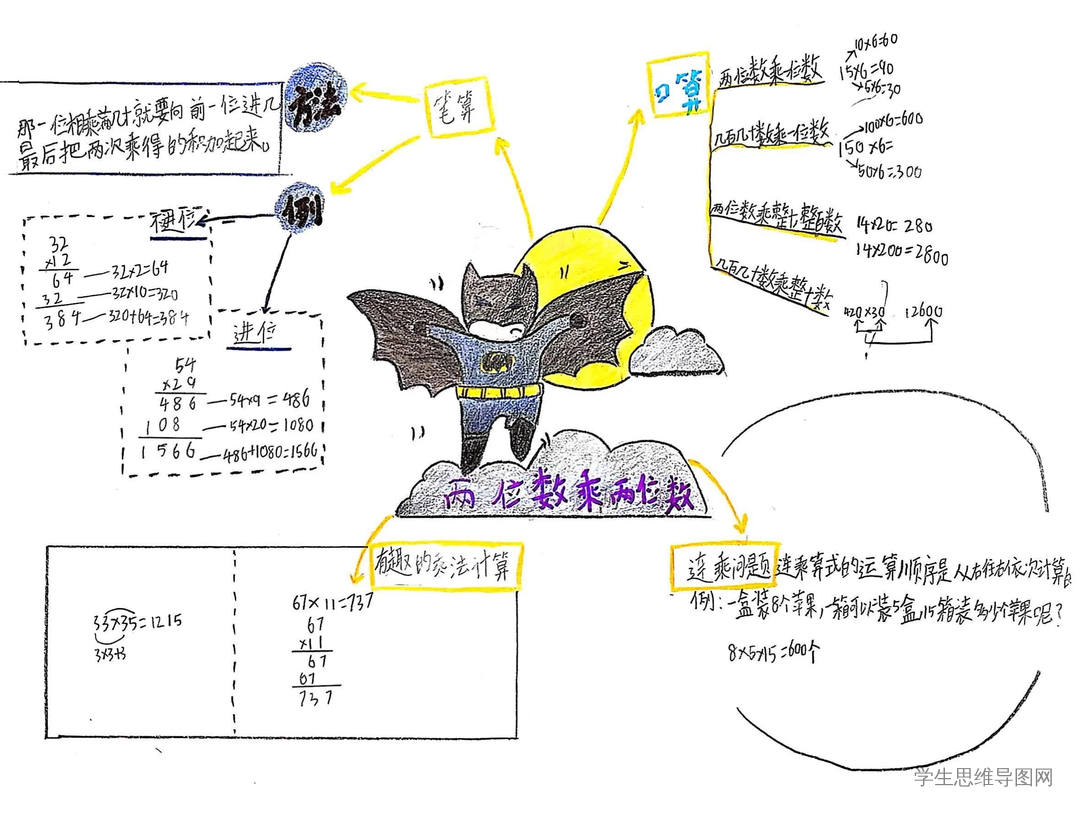 笔算
方法
那一位相乘满几十就要向前一位进几
最后把两次乘得的积加起来。
例
不进位
32
×12
64 — 32×2=64
32 — 32×10=320
384 — 320+64=384
进位
54
×29
486 — 54×9=486
108 — 54×20=1080
1566 — 486+1080=1566
口算
两位数乘一位数
10×6=60
15×6=90
5×6=30
几百几十数乘一位数
100×6=600
150×6=
50×6=300
两位数乘整十整百数
14×20=280
14×200=2800
几百几十数乘整十数
420×30 12600
两位数乘两位数
有趣的乘法计算
33×35=1215
3×3+3
67×11=737
67
×11
67
67
737
连乘问题 连乘算式的运算顺序是从右往右依次计算
例:一盒装8个苹果,一箱可以装5盒,15箱装多少个苹果呢?
8×5×15=600个
学生思维导图网